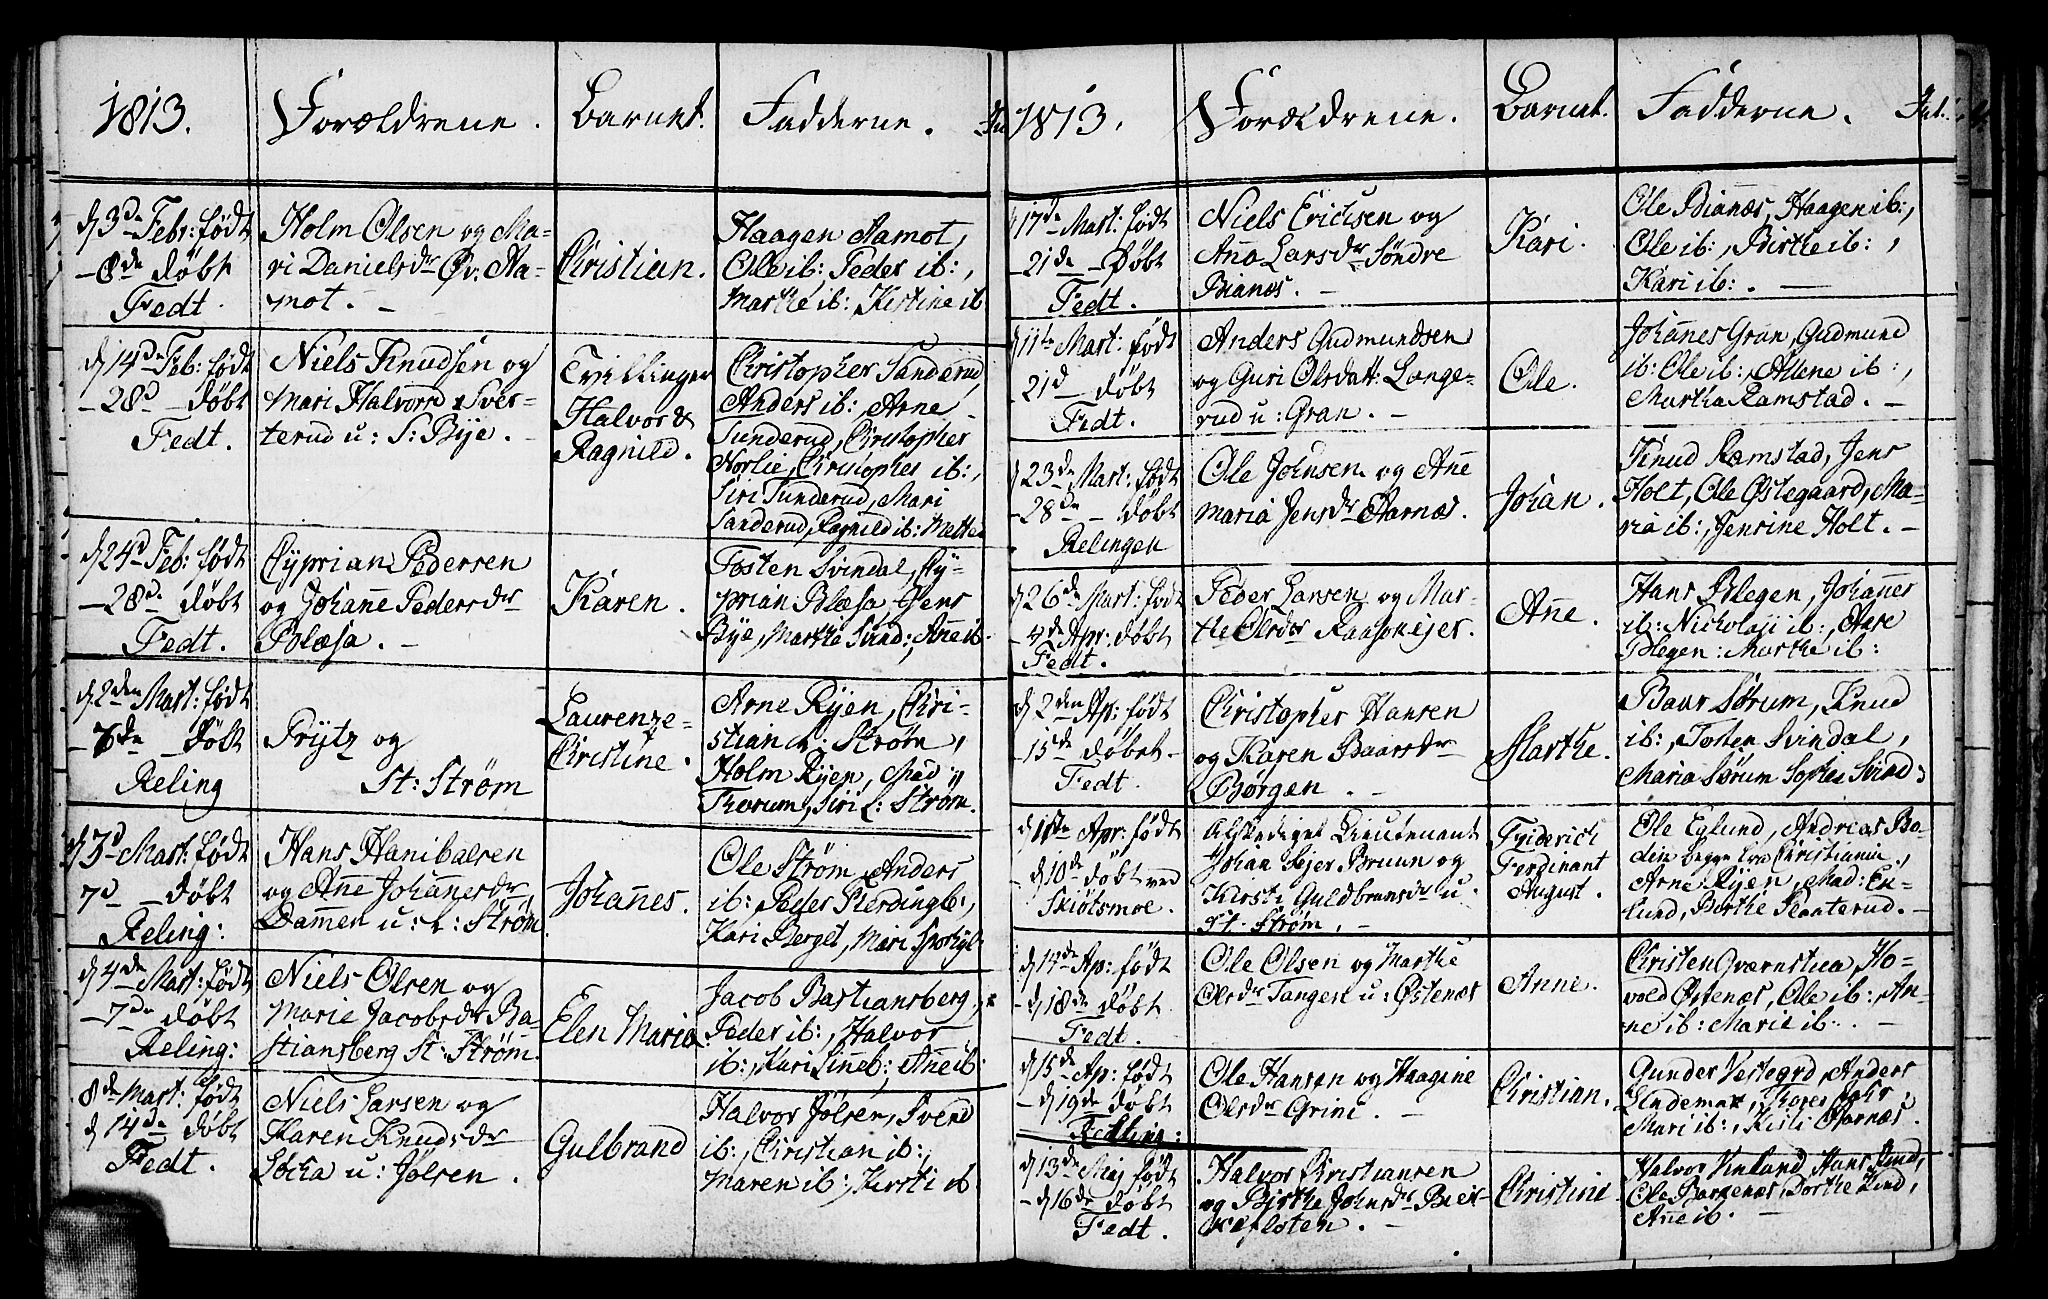 1813. Forældrene. Barnet. Fadderne.
d 3de Febr: født
– 8de døbt
Fedt.
Holm Olsen og Ma-
ri Danielsdr Øv. Aa-
mot. –
Christian.
Haagen Aamot,
Ole ib: Peder ib:,
Marthe ib: Kirstine ib
d 14de Feb: født
– 28d – døbt
Fedt.
Niels Knudsen og
Mari Halvorsd Sver-
terud u: S: Bye. –
Tvillinger
Halvor &
Ragnild.
Christopher Sanderud,
Anders ib:, Arne
Sunderud, Christopher
Norlie, Christopher ib:,
Siri Sunderud, Mari
Sanderud, Ragnild ib: Mette
d 24d Feb: født
– 28de døbt
Fedt.
Cyprian Pedersen
og Johañe Pedersdr
Blæsa. –
Karen.
Tosten Svindal, Cy-
prian Blæsa, Jens
Bye, Marthe Svind:, Añe ib.
d 2den Mart: født
– 7de – døbt
Reling
Prytz og
St: Strøm
Laurenze-
Christine.
Arne Ryen, Chri-
stian L: Strøm,
Holm Ryen, Mad:
Thorum, Siri L: Strøm.
d 3d Mart: født
7d – døbt
Reling:
Hans Hanibalsen
og Añe Johañesdr
Damen u: L: Strøm
Johañes.
Ole Strøm, Anders
ib:, Peder Pierdingb:,
Kari Berget, Mari
d 4de Mart: født
– 7de døbt
Reling:
Niels Olsen og
Marie Jacobsdr Ba-
stiansberg St: Strøm.
Elen Maria.
Jacob Bastiansberg,
Peder ib:, Halvor
ib:, Kari Sinneb:, Añe ib:
8de Mart: født
d 14de døbt
Fedt.
Niels Larsen og
Karen Knudsdr
Socka u: Jølsen.
Gulbrand
Halvor Jølsen, Svend
ib:, Christian ib:,
Maren ib:, Kirsti ib
1813. Forældrene. Barnet. Fadderne. Int:
d 17de Mart: født
– 21de – døbt
Fedt.
Niels Erichsen og
Año Larsdr Søndre
Bianes. –
Kari.
Ole Biañes, Haagen ib:,
Ole ib:, Birthe ib:,
Kari ib:. –
d 11te Mart: født
21d – døbt
Fedt.
Anders Gudmundsen
og Guri Olsdatt: Lange-
rud u: Gran. –
Ole.
Johañes Gran, Gudmund
ib: Ole ib:, Allene ib:,
Martha Ramstad. –
d 23de Mart: født
– 28de – døbt
Relingen
Ole Johnsen og Añe
Maria Jensdr Aarnæs.
Johan.
Knud Ramstad, Jens
Holt, Ole Østegaard, Ma-
ria ib:, Jensine Holt. –
d 26de Mart: født
– 4de Apr: døbt
Fedt.
Peder Larsen og Mar-
the Olsdr Raasonejer.
Añe.
Hans Blegen, Johañes
ib: Nickolaji ib:, Aase
Blegen: Marthe ib:
d 2den Ap: født
– 15de døbet –
Fedt.
Christopher Hansen
og Karen Baarsdr
Børgen. –
Marthe.
Baar Sørum, Knud
ib:, Tosten Svindal,
Maria Sørum Sophie Svind:
d 1ste Apr: født
d 10de døbt ved
Skiøtsmoe.
Afskediget Lieutenant
Johan Sejer Bruun og
Kirsti Guldbransdr u.
St. Strøm. –
Friderich
Ferdinant
August.
Ole Eglund, Andreas Bo-
din begge fra Christiania,
Arne Ryen, Mad: En-
lund, Berthe Planterud. –
d 14de Ap: født
– d 18de døbt
Fedt.
Ole Olsen og Marthe
Olsdr Tangen u: Østenæs
Anne.
Christen Qværnstua, Ho-
vold Østenæs, Ole ib:, An-
ne ib: Marie ib:. –
d 15de Ap: født
– d 19de døbt
Relling:
Ole Hansen og Haagine
Olsdr Grini. –
Christian.
Gunder Vestegrd, Anders
Lindemar,
Mari ib:, Kisti Aarnæs.
d 13de Maj født
– d 16de døbt
Fedt.
Halvor Christiansen
og Birthe Johnsdr Bier-
keflsten. –
Christine
Halvor Vinlund, Hans Lund,
Ole Børkenæs, Dorthe Lund,
Añe ib. –